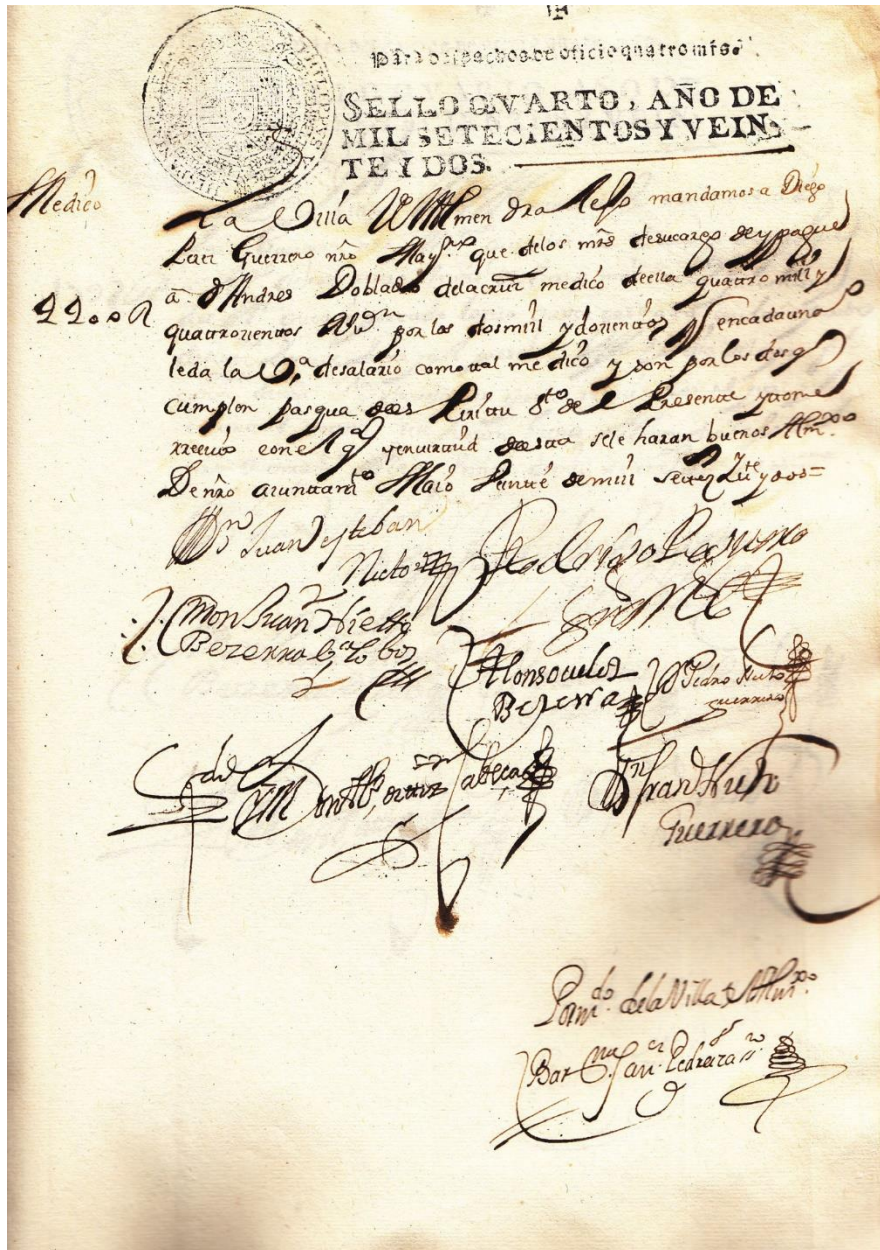 Para despachos de oficio quatro mrs.
SELLO QVARTO, AÑO DE
MIL SETECIENTOS Y VEIN-
TE I DOS.
Medico
La Villa de Almendralejo mandamos a Diego
Guerrero nro Maymo que delos mrs desucargo de y pague
a Dn Andres Doblado delacruz medico deella quattro mill y
4400 Rs
quattrocientos Rs Vn por los dosmill y docientos q encadauno
leda la Va desalario comotal medico y son por los dos q
cumplen pasqua de es Piritu Sto de el Presente y tome
rreciuo con el ql y envirtud deesta sele haran buenos Almo
De nro aiuntamto Maio Veinte de mill setezs Vte y dos=
Dn Juan esteban
Nieto
Rodrigo
Don Juan Nietto
Bezerra
Alonso uelez
Bezerra
Dn Pedro Nieto
Guerrero
Dn Fran Nieto
Guerrero
Por mdo dela Villa de Almxo
Barme San